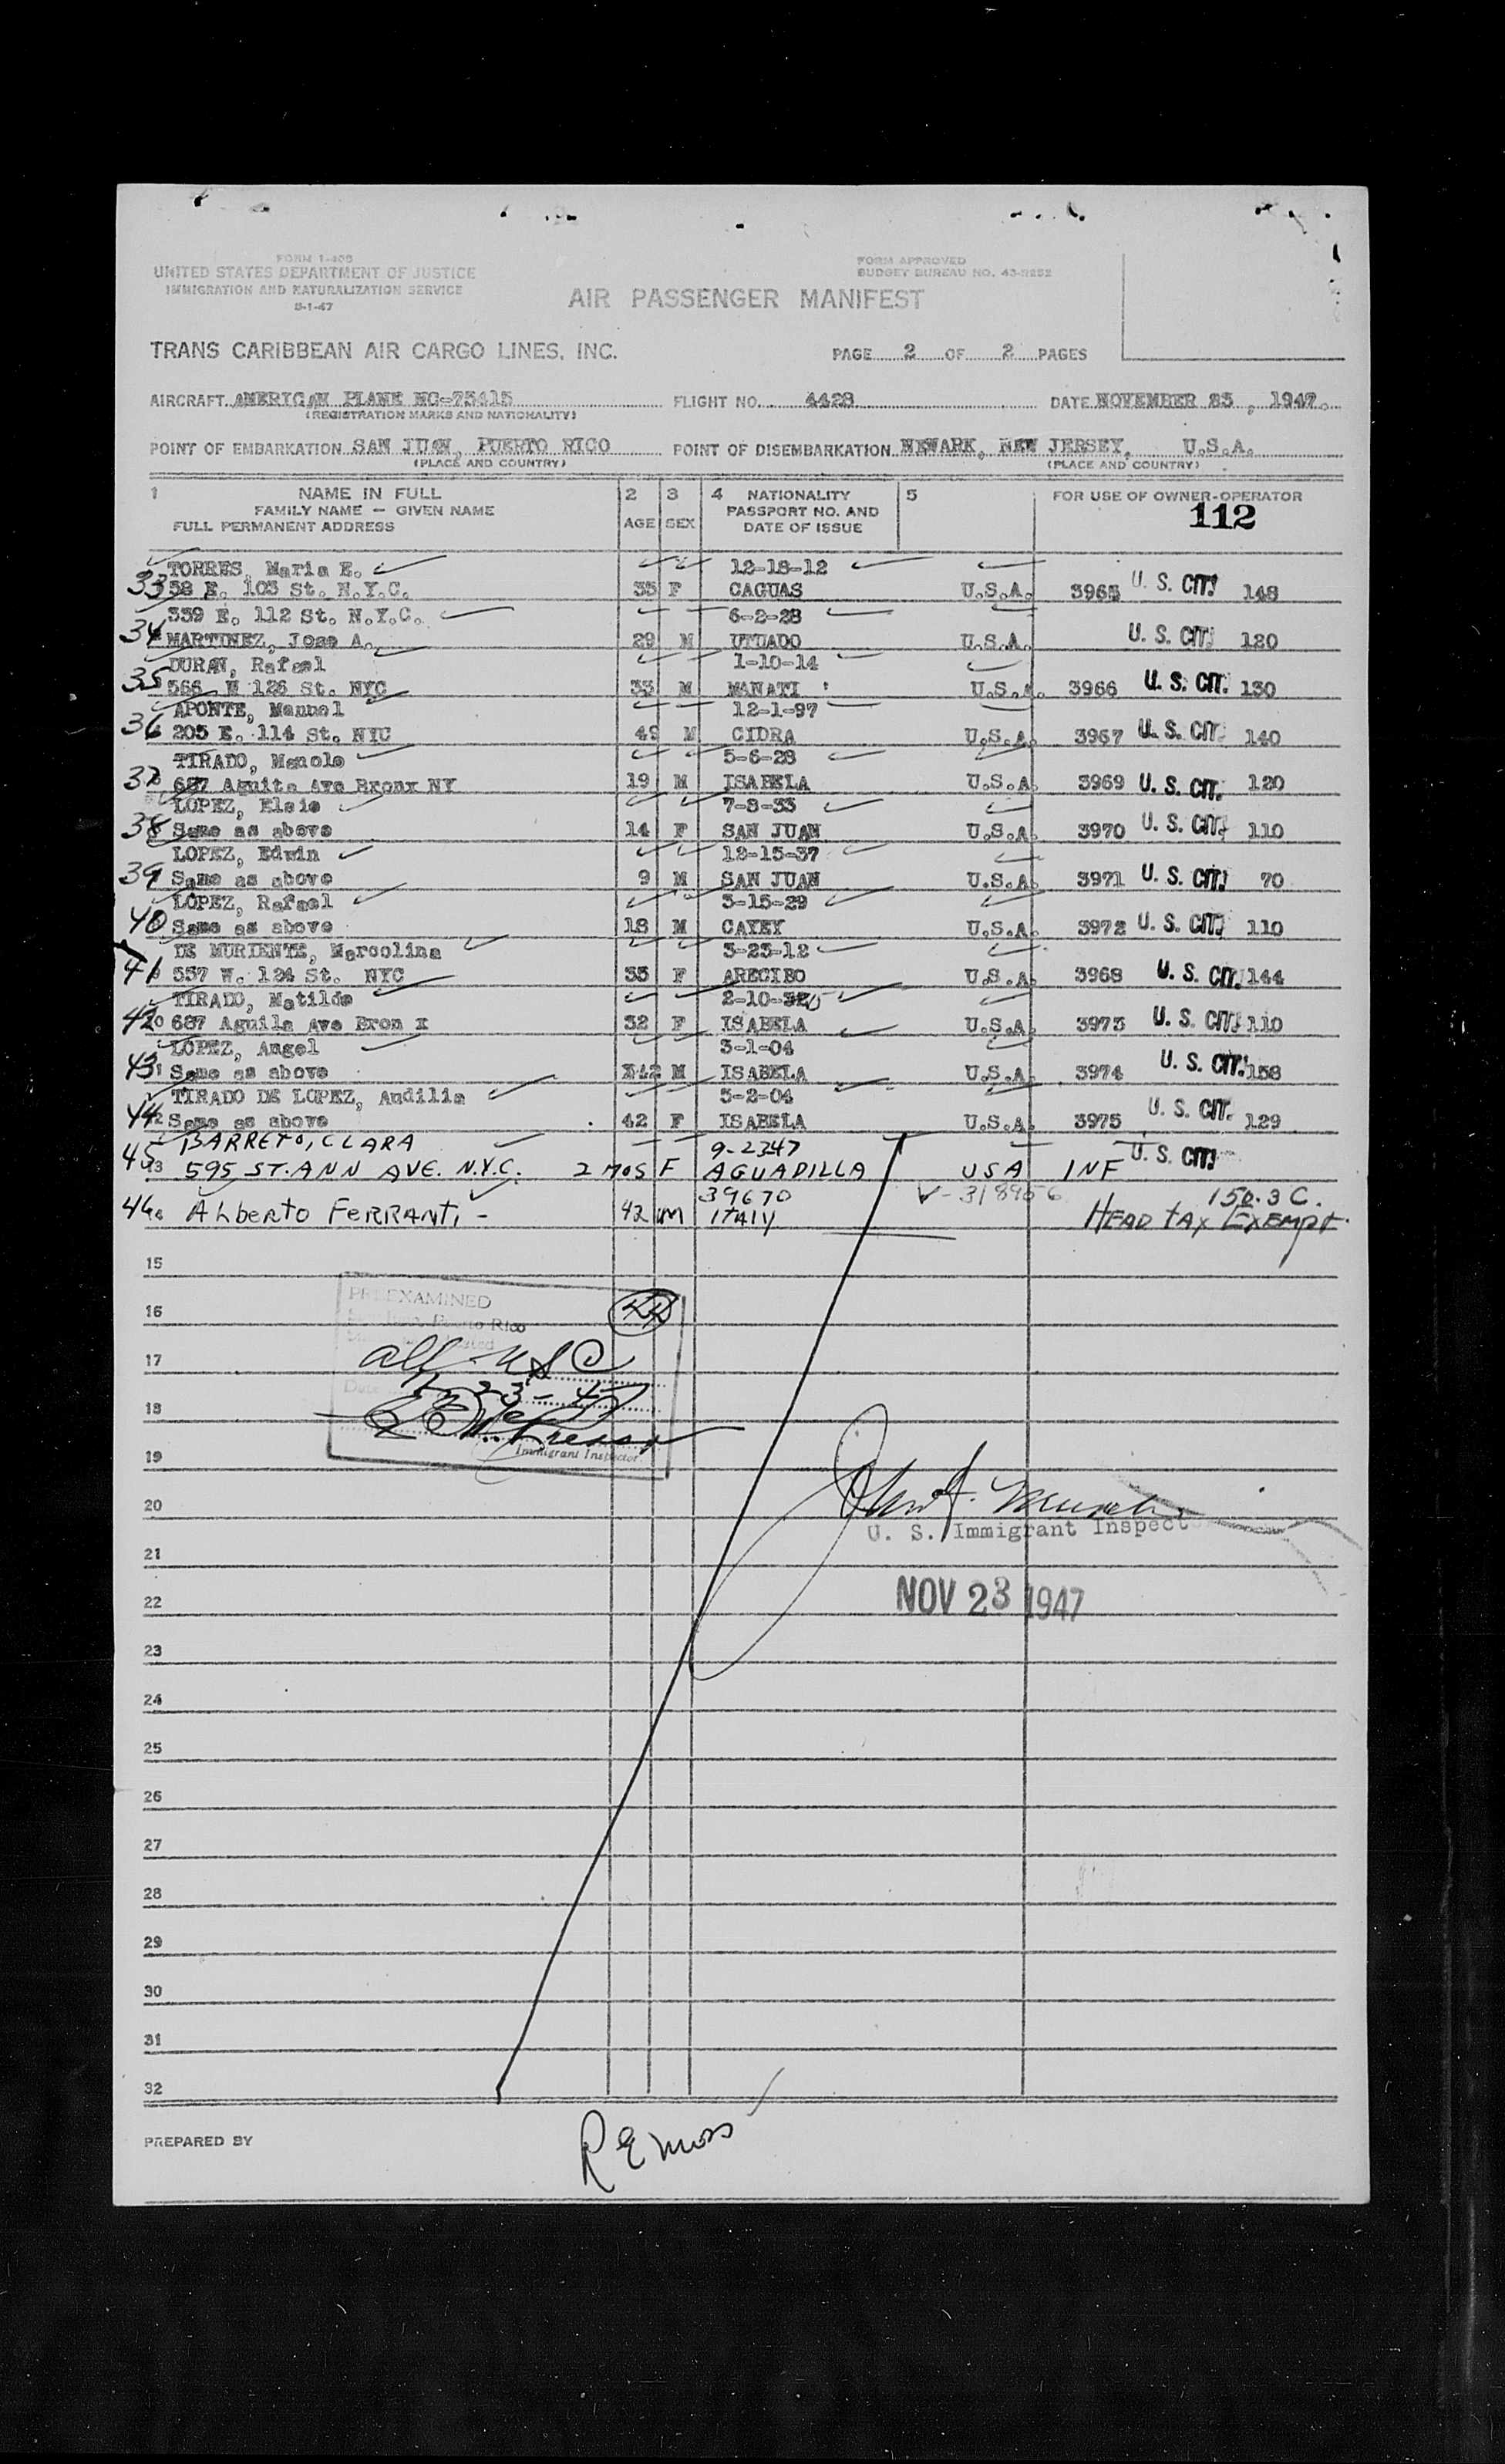 FORM I-408
UNITED STATES DEPARTMENT OF JUSTICE
IMMIGRATION AND NATURALIZATION SERVICE
FORM APPROVED
BUDGET BUREAU NO. 43-R252
AIR PASSENGER MANIFEST
TRANS CARIBBEAN AIR CARGO LINES, INC.
PAGE 2 OF 2 PAGES
AIRCRAFT AMERICAN PLANE NC-75415 FLIGHT NO. 4428 DATE NOVEMBER 23, 1947.
(REGISTRATION MARKS AND NATIONALITY)
POINT OF EMBARKATION SAN JUAN, PUERTO RICO POINT OF DISEMBARKATION NEWARK, NEW JERSEY, U.S.A.
(PLACE AND COUNTRY) (PLACE AND COUNTRY)
1 NAME IN FULL 2 3 4 NATIONALITY 5 FOR USE OF OWNER-OPERATOR
FAMILY NAME — GIVEN NAME PASSPORT NO. AND 112
FULL PERMANENT ADDRESS AGE SEX DATE OF ISSUE
TORRES, Maria E. 12-18-12
33 58 E. 103 St. N.Y.C. 35 F CAGUAS U.S.A. 3965 U. S. CIT. 148
339 E. 112 St. N.Y.C. 6-2-28
34 MARTINEZ, Jose A. 29 M UTUADO U.S.A. U. S. CIT. 120
DURAN, Rafael 1-10-14
35 566 W 126 St. NYC 33 M MANATI U.S.A. 3966 U. S. CIT. 130
APONTE, Manuel 12-1-97
36 205 E. 114 St. NYC 49 M CIDRA U.S.A. 3967 U. S. CIT. 140
TIRADO, Manolo 5-6-28
37 687 Aguita Ave Bronx NY 19 M ISABELA U.S.A. 3969 U. S. CIT. 120
LOPEZ, Elsie 7-8-33
38 Same as above 14 F SAN JUAN U.S.A. 3970 U. S. CIT. 110
LOPEZ, Edwin 12-15-37
39 Same as above 9 M SAN JUAN U.S.A. 3971 U. S. CIT. 70
LOPEZ, Rafael 3-15-29
40 Same as above 18 M CAYEY U.S.A. 3972 U. S. CIT. 110
DE MURIENTE, Marcolina 3-23-12
41 537 W. 124 St. NYC 35 F ARECIBO U.S.A. 3968 U. S. CIT. 144
TIRADO, Matilde 2-10-
42 687 Aguila Ave Bron x 32 F ISABELA U.S.A. 3973 U. S. CIT. 110
LOPEZ, Angel 3-1-04
43 Same as above 42 M ISABELA U.S.A. 3974 U. S. CIT. 158
TIRADO DE LOPEZ, Audilia 5-2-04
44 Same as above 42 F ISABELA U.S.A. 3975 U. S. CIT. 129
BARRETO, CLARA 9-2347 U. S. CIT.
45 13 595 ST. ANN AVE. N.Y.C. 2 MOS F AGUADILLA USA INF
39670 V-318956 150.3 C.
46 Alberto FERRANTI - 42 M ITALY HEAD TAX EXEMPT.
15
PREEXAMINED
16 44
Puerto Rico
17 all USC
Date 11-23-47
18
Immigrant Inspector
19
20
U. S. Immigrant Inspect
21
22 NOV 23 1947
23
24
25
26
27
28
29
30
31
32
PREPARED BY